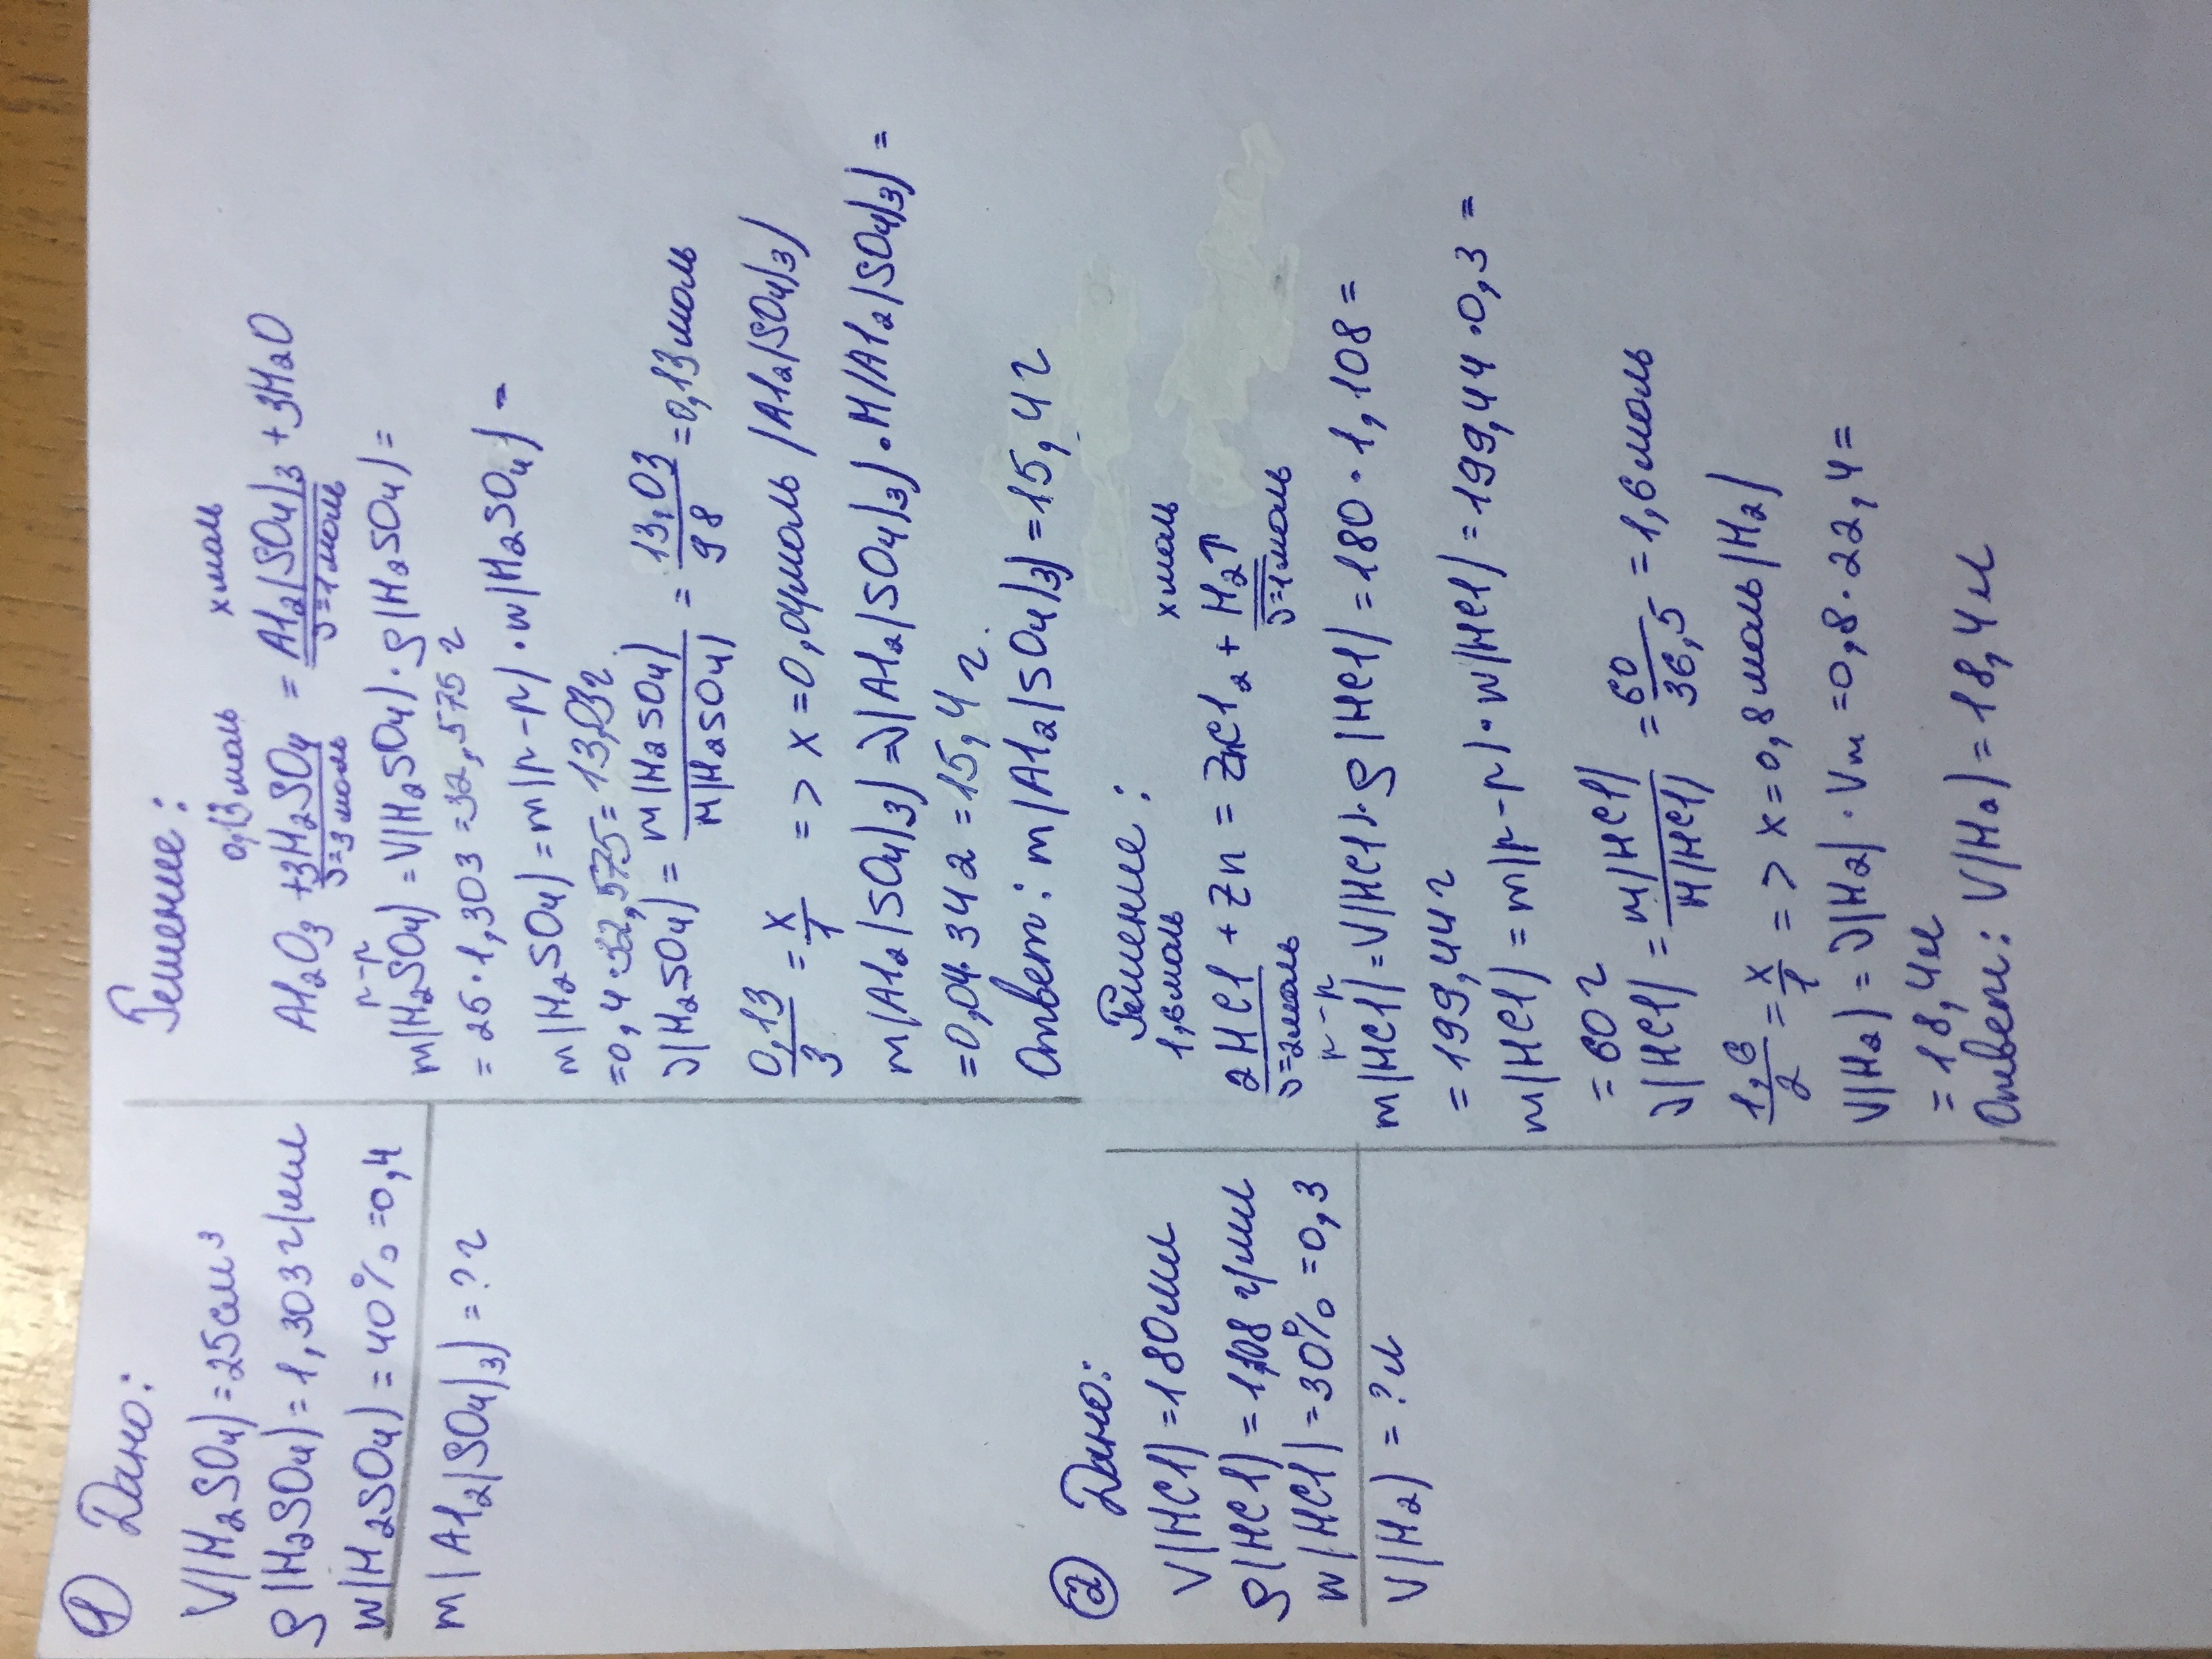 ① Дано:
V(H₂SO₄) = 25см³
ρ(H₂SO₄) = 1,303 г/мл
w(H₂SO₄) = 40% = 0,4
m(Al₂(SO₄)₃) = ? г
Решение:
0,13 моль x моль
Al₂O₃ + 3H₂SO₄ = Al₂(SO₄)₃ + 3H₂O
ν=3 моль ν=1 моль
р-р
m(H₂SO₄) = V(H₂SO₄) · ρ(H₂SO₄) =
= 25 · 1,303 = 32,575 г
m(H₂SO₄) = m(р-р) · w(H₂SO₄) =
= 0,4 · 32,575 = 13,03г
ν(H₂SO₄) = m(H₂SO₄)/M(H₂SO₄) = 13,03/98 = 0,13 моль
0,13/3 = x/1 => x = 0,04моль (Al₂(SO₄)₃)
m(Al₂(SO₄)₃) = ν(Al₂(SO₄)₃) · M(Al₂(SO₄)₃) =
= 0,04 · 342 = 15,4 г.
Ответ: m(Al₂(SO₄)₃) = 15,4 г
② Дано:
V(HCl) = 180мл
ρ(HCl) = 1,108 г/мл
w(HCl) = 30% = 0,3
V(H₂) = ? л
Решение:
1,6моль x моль
2HCl + Zn = ZnCl₂ + H₂↑
ν=2моль ν=1моль
р-р
m(HCl) = V(HCl) · ρ(HCl) = 180 · 1,108 =
= 199,44 г
m(HCl) = m(р-р) · w(HCl) = 199,44 · 0,3 =
= 60 г
ν(HCl) = m(HCl)/M(HCl) = 60/36,5 = 1,6 моль
1,6/2 = x/1 => x = 0,8 моль (H₂)
V(H₂) = ν(H₂) · Vm = 0,8 · 22,4 =
= 18,4л
Ответ: V(H₂) = 18,4 л